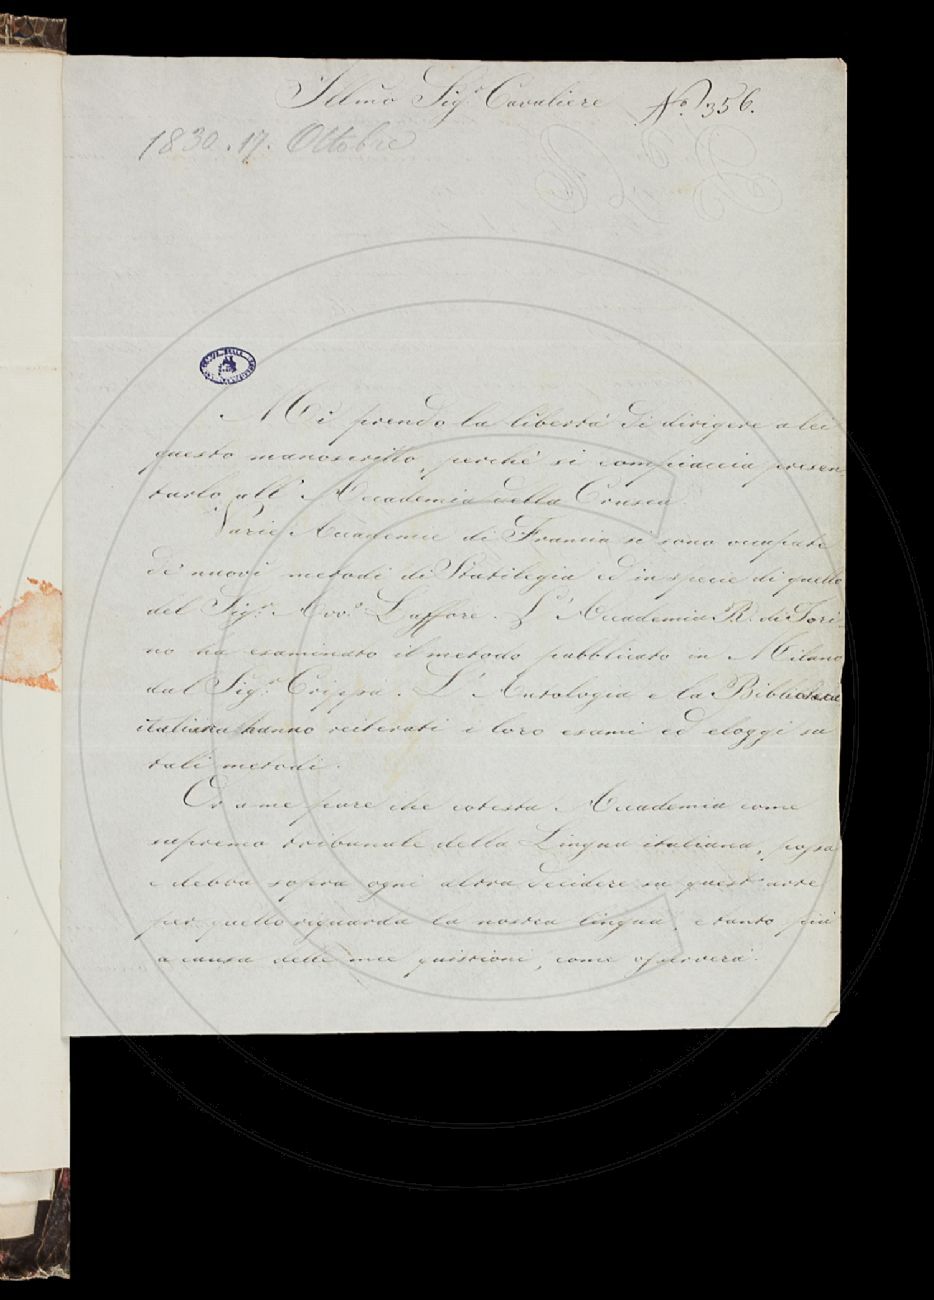 Illmo Sigr. Cavaliere No. 356.
1830. 17. Ottobre
Mi prendo la libertà di dirigere a lei
questo manoscritto, perchè si compiaccia presen
tarlo all' Accademia della Crusca.
Varie Accademie di Francia si sono occupate
de' nuovi metodi di Statilegia ed in specie di quello
del Sigr. Avvo. Laffore. L' Accademia R. di Tori-
no ha esaminato il metodo pubblicato in Milano
dal Sigr. Crippa. L' Antologia e la Biblioteca
italiana hanno reiterati i loro esami ed eloggi su
tali metodi.
Or a me pare che cotesta Accademia come
supremo tribunale della Lingua italiana, possa
e debba sopra ogni altra decidere su quest' arte
per quello riguarda la nostra lingua, e tanto più
a causa delle mie quistioni, come osserverà.